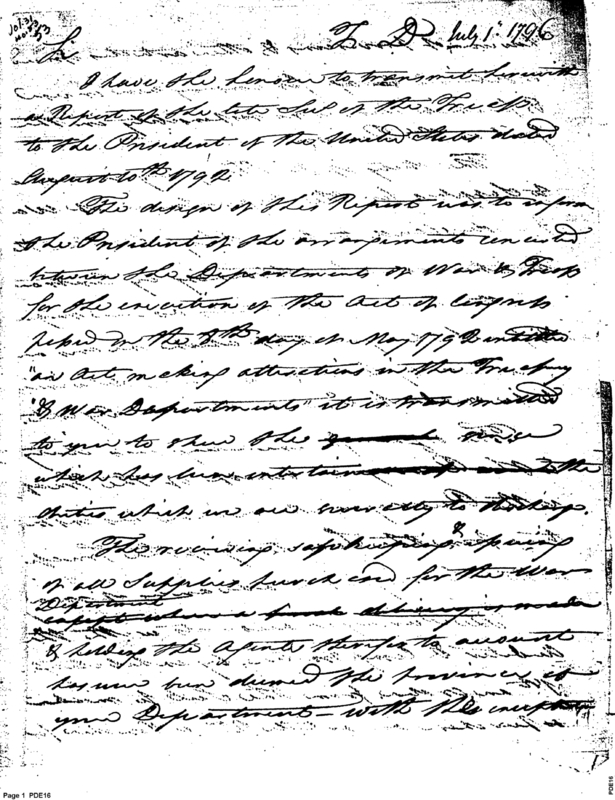 T. D. July 1. 1796
Sir
I have the honour to transmit herewith
a Report of the late Sec of the Treasy
to the President of the United States dated
August 10th 1792.
The design of this Report was to inform
the President of the arrangements concerted
between the Departments of War & Treasy
for the execution of the Act of Congress
passed on the 8th day of May 1792 entitled
"an Act making alterations in the Treasury
"& War Departments" it is transmitted
to you to shew the
which has been entertained the
duties which we are severally to discharge.
The receiving, safekeeping & issuing
of all Supplies purchased for the War
Department
except where a delivery is made
& holding the Agents therefor to account
has ever been deemed the province of
your Department – with this exception
13
Page 1 PDE16
PDE16